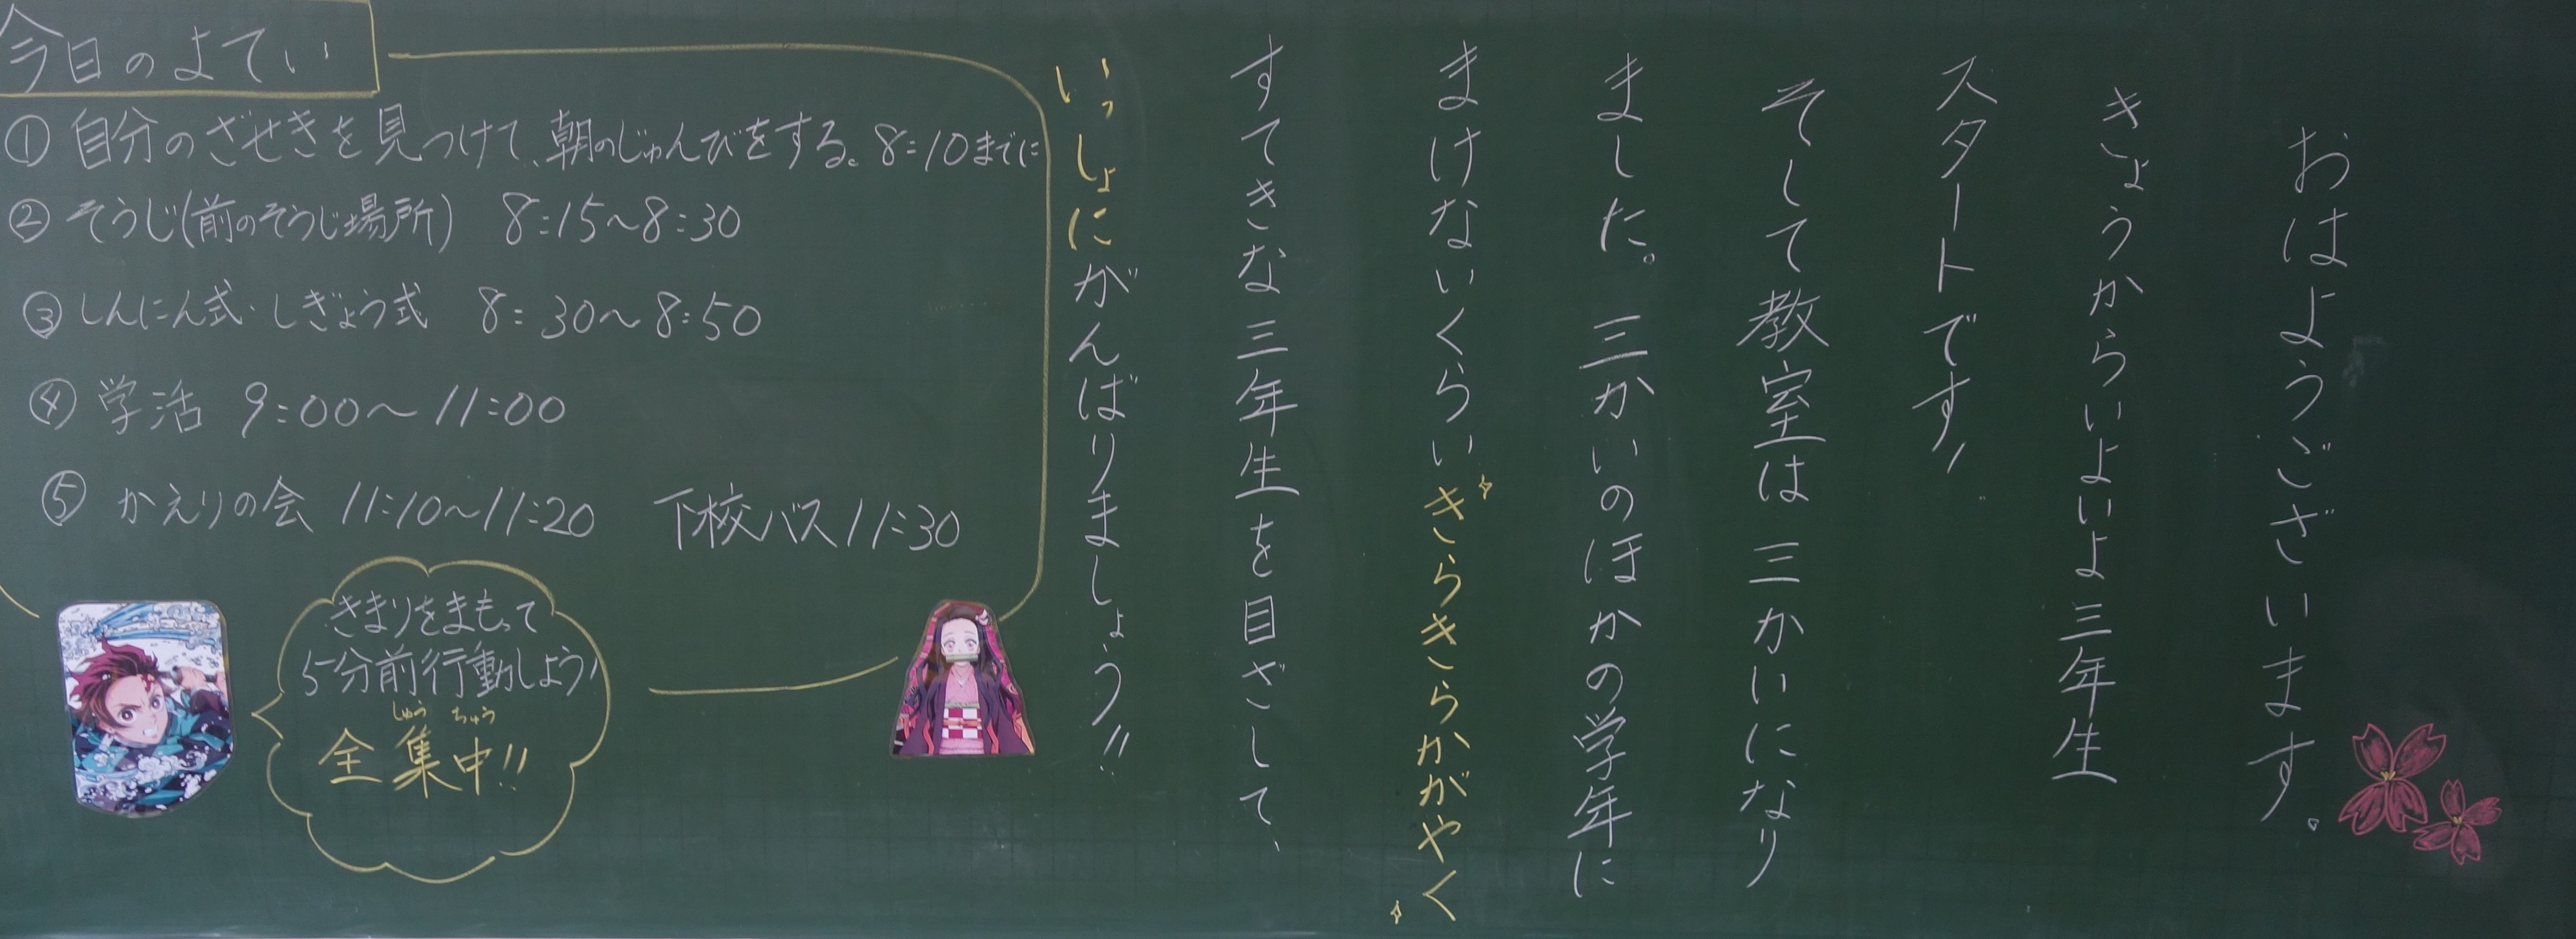 おはようございます。
きょうからいよいよ三年生
スタートです!
そして教室は三かいになり
ました。三かいのほかの学年に
まけないくらいきらきらかがやく
すてきな三年生を目ざして、
いっしょにがんばりましょう!!
今日のよてい
① 自分のざせきを見つけて、朝のじゅんびをする。8:10までに
② そうじ(前のそうじ場所) 8:15~8:30
③ しんにん式・しぎょう式 8:30~8:50
④ 学活 9:00~11:00
⑤ かえりの会 11:10~11:20 下校バス11:30
きまりをまもって
5分前行動しよう!
しゅう ちゅう
全集中!!